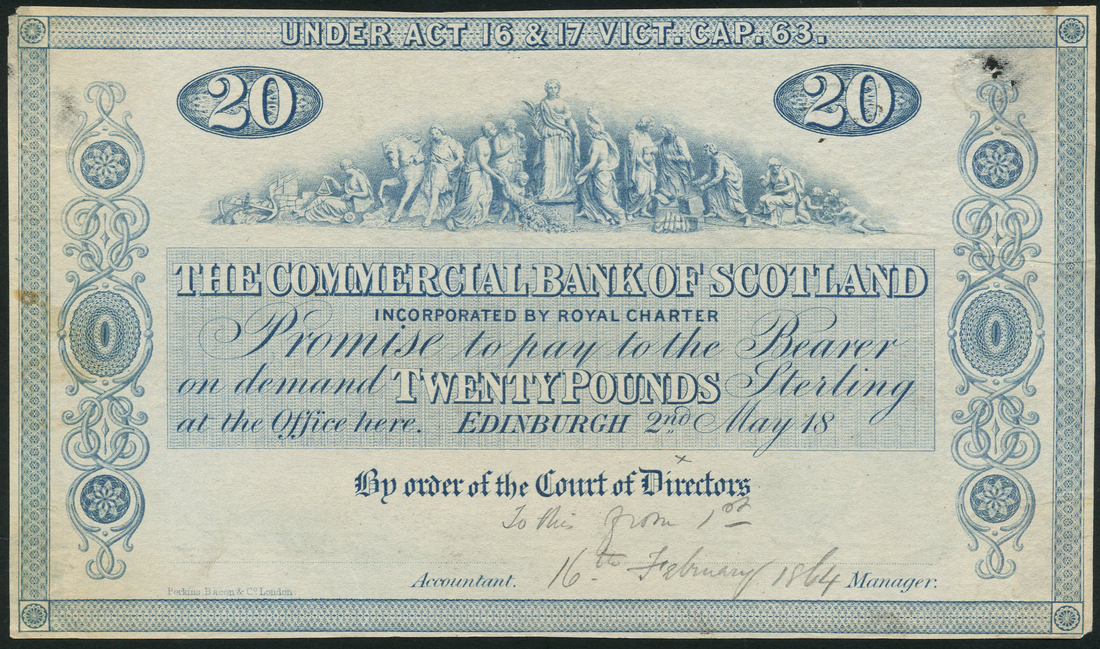 UNDER ACT 16 & 17 VICT. CAP. 63.
20 20
THE COMMERCIAL BANK OF SCOTLAND
INCORPORATED BY ROYAL CHARTER
Promise to pay to the Bearer
on demand TWENTY POUNDS Sterling
at the Office here. EDINBURGH 2nd May 18
x
By order of the Court of Directors
To this from 1st
16th February 1864
Accountant. Manager.
Perkins, Bacon & Co. London.